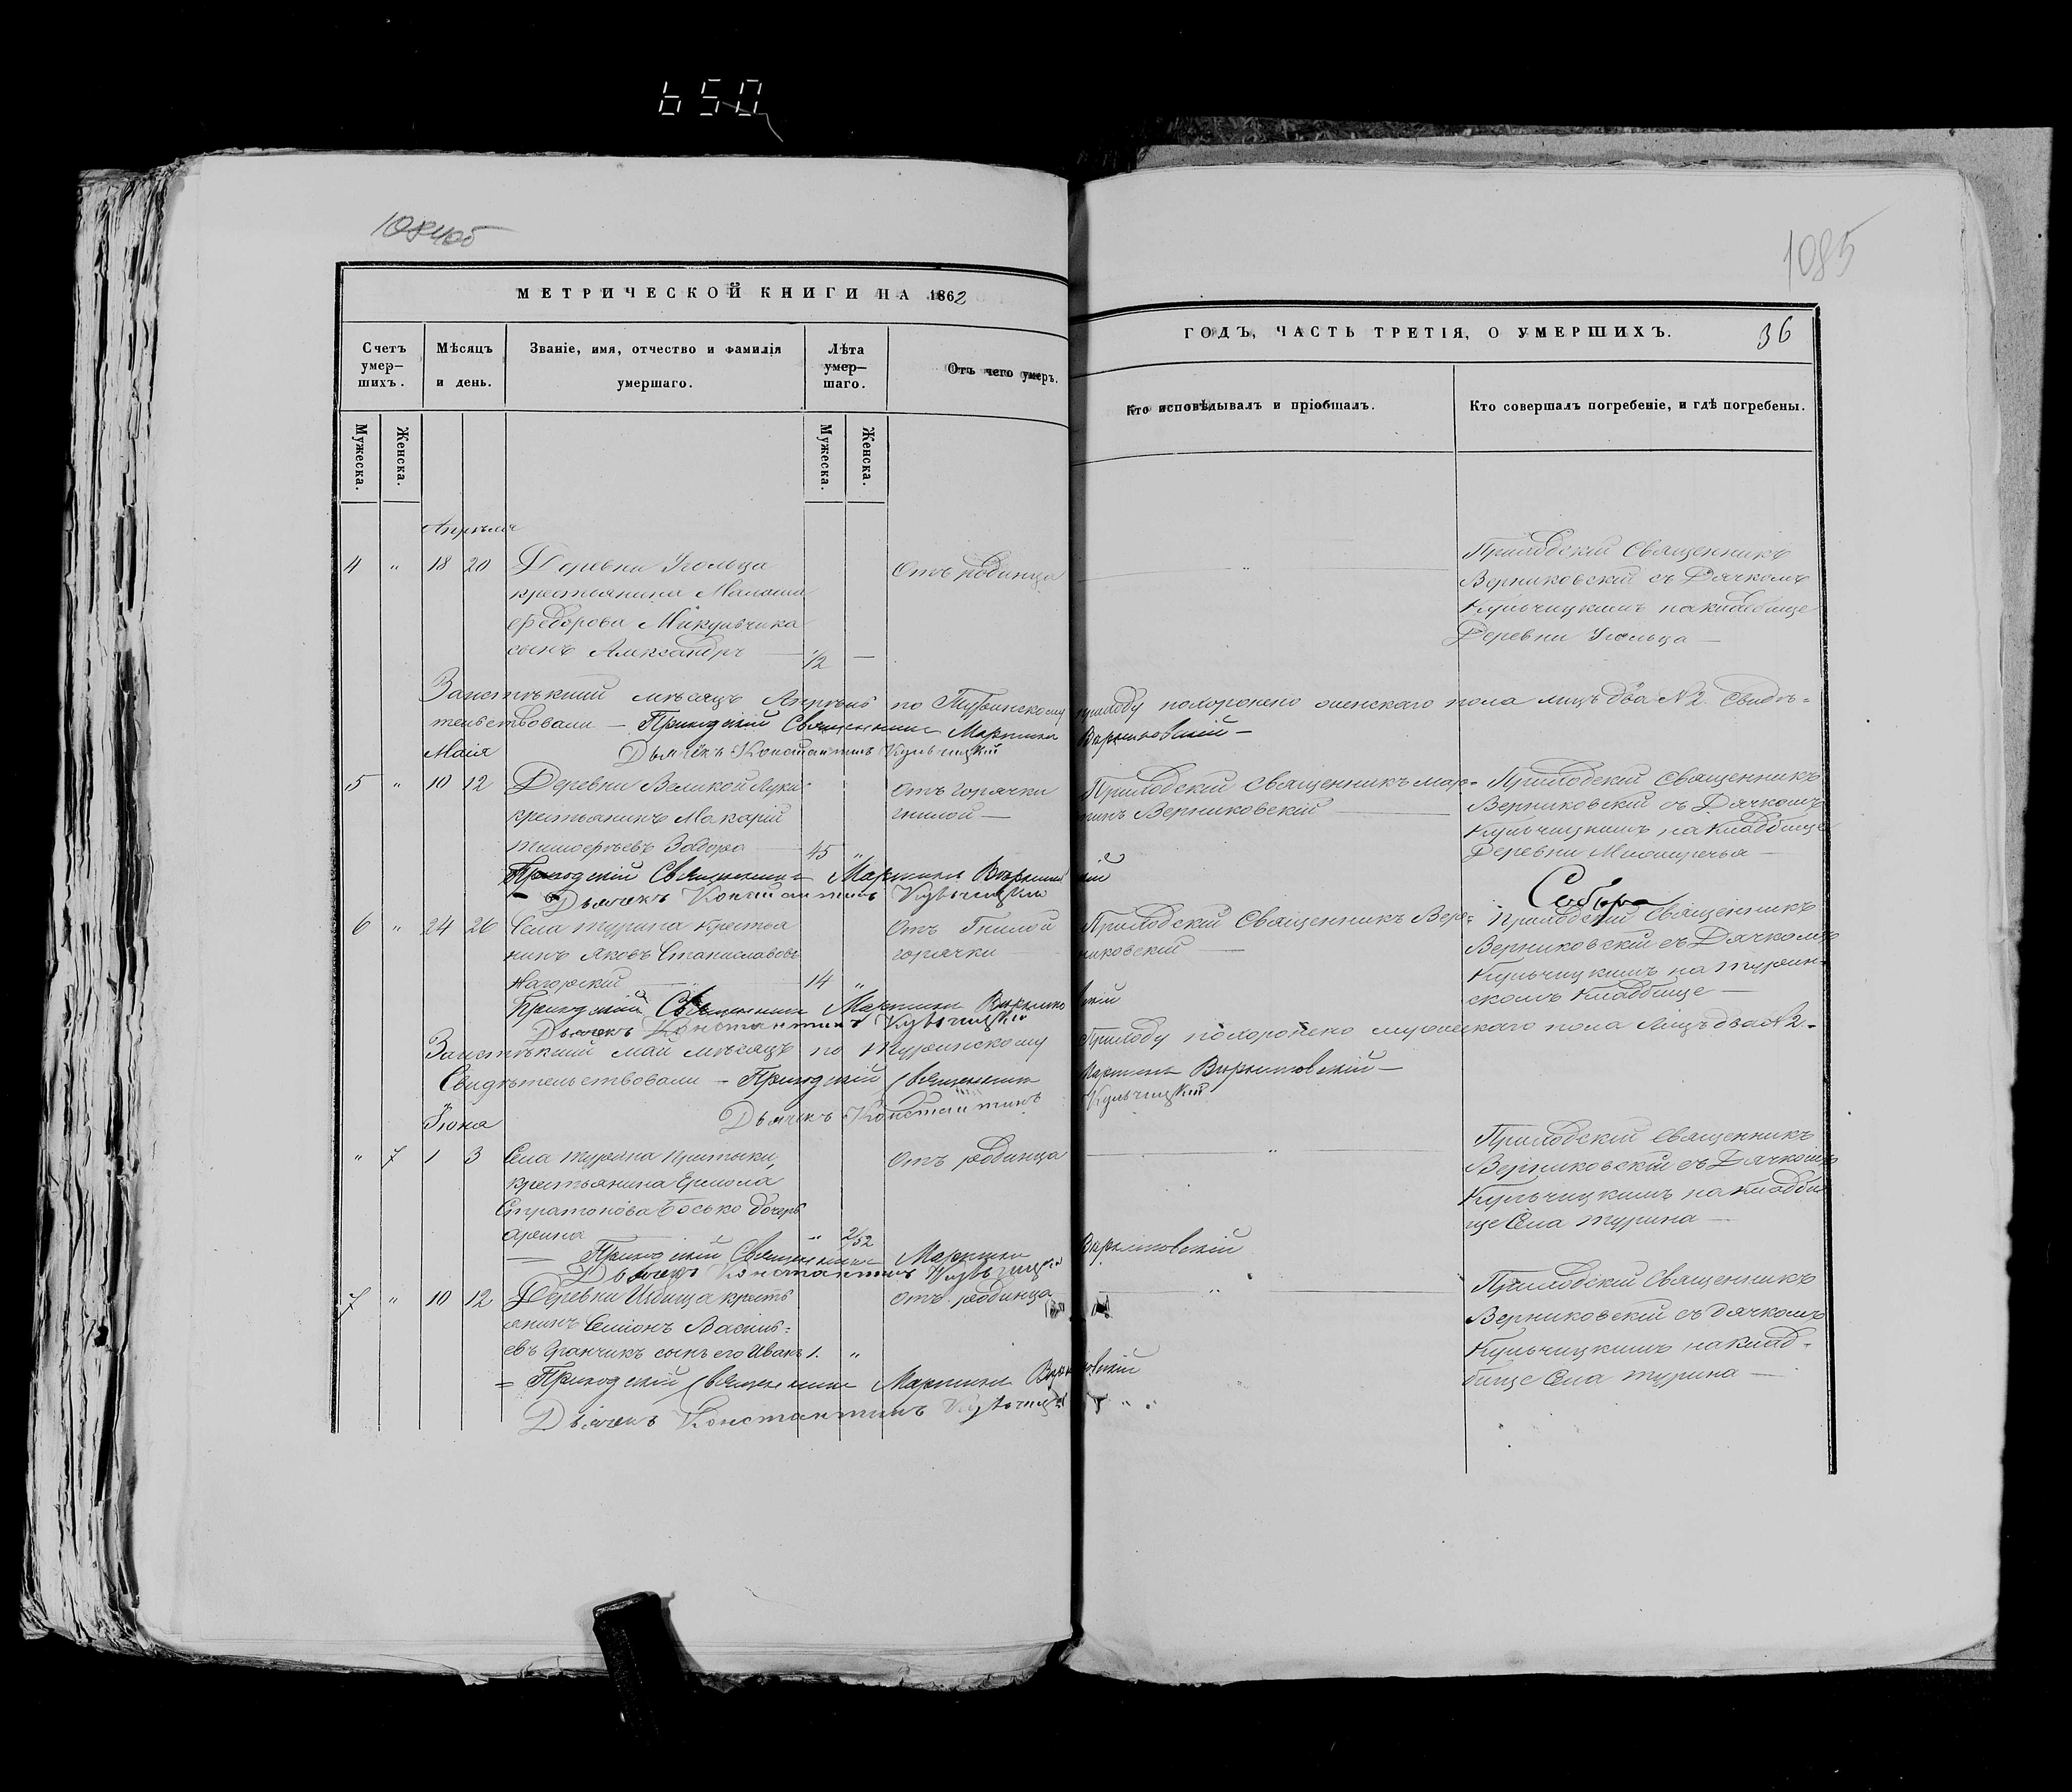 650
1084об
1085
МЕТРИЧЕСКОЙ КНИГИ НА 1862
ГОДЪ, ЧАСТЬ ТРЕТІЯ, О УМЕРШИХЪ.
36
Счетъ умер—шихъ.
Мѣсяцъ и день.
Званіе, имя, отчество и фамилія умершаго.
Лѣта умер—шаго.
Отъ чего умеръ.
Кто исповѣдывалъ и пріобщалъ.
Кто совершалъ погребеніе, и гдѣ погребены.
Мужеска.
Женска.
Мужеска.
Женска.
Апрѣля
4 " 18 20 Деревни Угольца
крестьянина
Федорова Микульчика
сынъ Александръ — 1/2 —
Отъ родимца
"
Приходскій Священникъ
Верниковскій съ Дячкомъ
Кульчицкимъ на кладбище
Деревни Угольца —
мѣсяцъ по Туринскому приходу похоронено женскаго пола лицъ два №2. Свидѣ=
тельствовали — Приходскій Священникъ Мартинъ
Дьячекъ Константинъ Кульчицкій
Маія
5 " 10 12 Деревни Великой Луки
крестьянинъ Макарій
45 "
Отъ горячки
гнилой —
Приходскій Священникъ Мар=
тинъ Верниковскій —
Приходскій Священникъ
Верниковскій съ Дячкомъ
Кульчицкимъ на Кладбище
Деревни —
Приходскій Священникъ Мартинъ
Дьячекъ Константинъ Кульчицкій
6 " 24 26 Села Турина Крестья
нинъ Яковъ Станиславовъ
Нагорскій — 14 "
Отъ Гнилой
горячки
Приходскій Священникъ Вер=
никовскій —
Приходскій Священникъ
Верниковскій съ Дячкомъ
Кульчицкимъ на Турин=
скомъ Кладбище —
Приходскій Священникъ Мартинъ
Дьячекъ Константинъ Кульчицкій
май мѣсяцъ по Туринскому Приходу похоронено мужескаго пола Лицъ два №2 —
Свидѣтельствовали — Приходскій Священникъ Мартинъ
Дьячекъ Константинъ Кульчицкій
Іюня
" 7 1 3 Села Турина
крестьянина Ермола
Стратонова Босько дочерь
" 2/52
Отъ родимца
"
Приходскій Священникъ
Верниковскій съ Дячкомъ
Кульчицкимъ на Кладби
ще Села Турина —
Приходскій Священникъ Мартинъ
Дьячекъ Константинъ Кульчицкій
7 " 10 12 Деревни крестъ
янинъ Семіонъ Василь=
евъ сынъ его Иванъ 1. "
Отъ родимца
"
Приходскій Священникъ
Верниковскій съ дячкомъ
Кульчицкимъ на клад=
бище Села Турина —
Приходскій Священникъ Мартинъ
Дьячекъ Константинъ